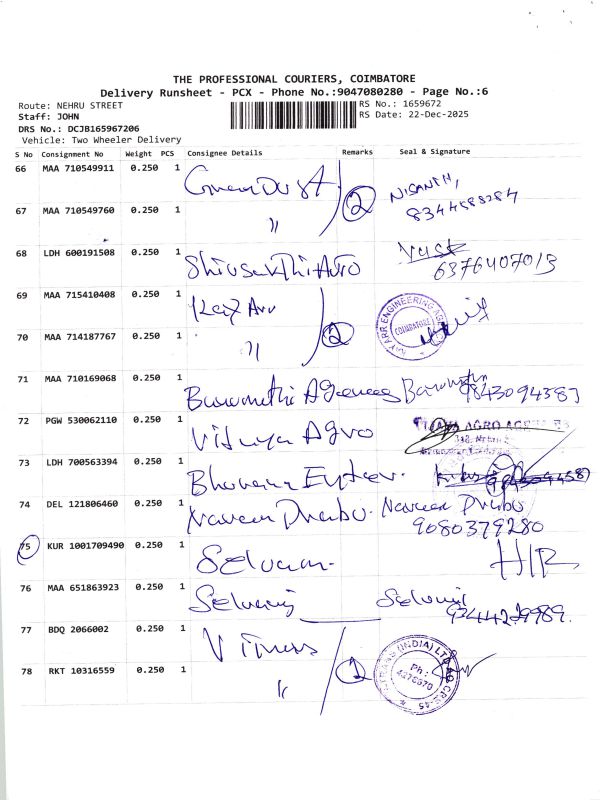 THE PROFESSIONAL COURIERS, COIMBATORE
Delivery Runsheet - PCX - Phone No.:9047080280 - Page No.:6
Route: NEHRU STREET
RS No.: 1659672
Staff: JOHN
RS Date: 22-Dec-2025
DRS No.: DCJB165967206
Vehicle: Two Wheeler Delivery
S No Consignment No Weight PCS Consignee Details Remarks Seal & Signature
66 MAA 710549911 0.250 1
2 NISANTH,
67 MAA 710549760 0.250 1 "
8344588284
68 LDH 600191508 0.250 1 Shivsakthi Auto
6376407013
69 MAA 715410408 0.250 1 Kay Arr
KAY ARR ENGINEERING COIMBATORE
70 MAA 714187767 0.250 1 " 2
71 MAA 710169068 0.250 1 9843094387
72 PGW 530062110 0.250 1 Vidhya Agro
AGRO
73 LDH 700563394 0.250 1 Bhavana
74 DEL 121806460 0.250 1 Naveen Prabu. Naveen Prabu
9080379280
75 KUR 1001709490 0.250 1 Selvam
76 MAA 651863923 0.250 1 Selvaraj
77 BDQ 2066002 0.250 1
78 RKT 10316559 0.250 1 "
(INDIA) LTD
Ph :
4276670